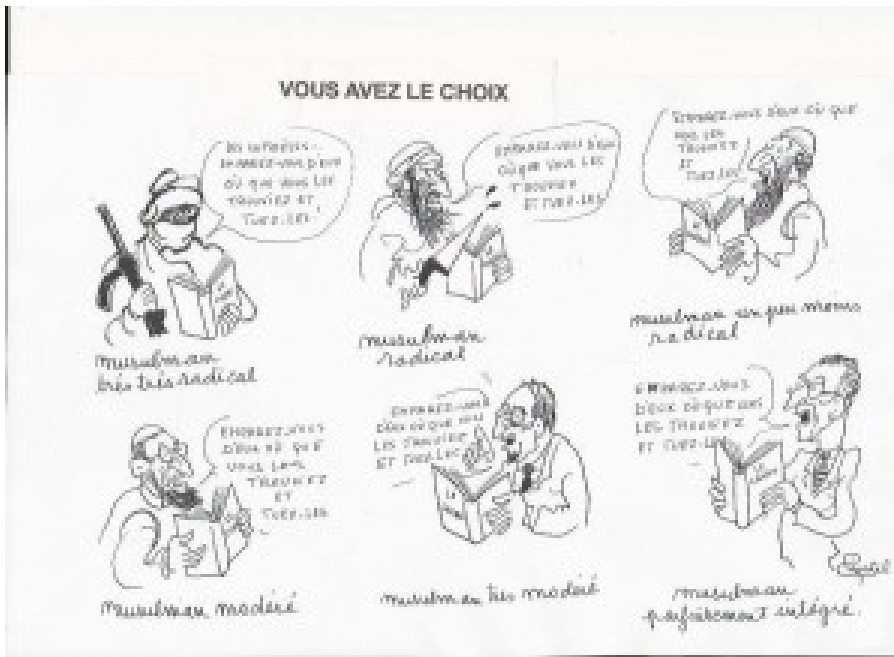 VOUS AVEZ LE CHOIX
EMPAREZ-VOUS D'EUX
OÙ QUE VOUS LES
TROUVIEZ ET
TUEZ-LES !
musulman
très très radical
EMPAREZ-VOUS D'EUX
OÙ QUE VOUS LES
TROUVIEZ
ET TUEZ-LES
musulman
radical
EMPAREZ-VOUS D'EUX OÙ QUE
VOUS LES
TROUVIEZ
ET
TUEZ-LES
musulman un peu moins
radical
EMPAREZ-VOUS
D'EUX OÙ QUE
VOUS LES
TROUVIEZ
ET
TUEZ-LES
musulman modéré
EMPAREZ-VOUS
D'EUX OÙ QUE VOUS
LES TROUVIEZ
ET TUEZ-LES
musulman très modéré
EMPAREZ-VOUS
D'EUX OÙ QUE VOUS
LES TROUVIEZ
ET TUEZ-LES
musulman
parfaitement intégré.